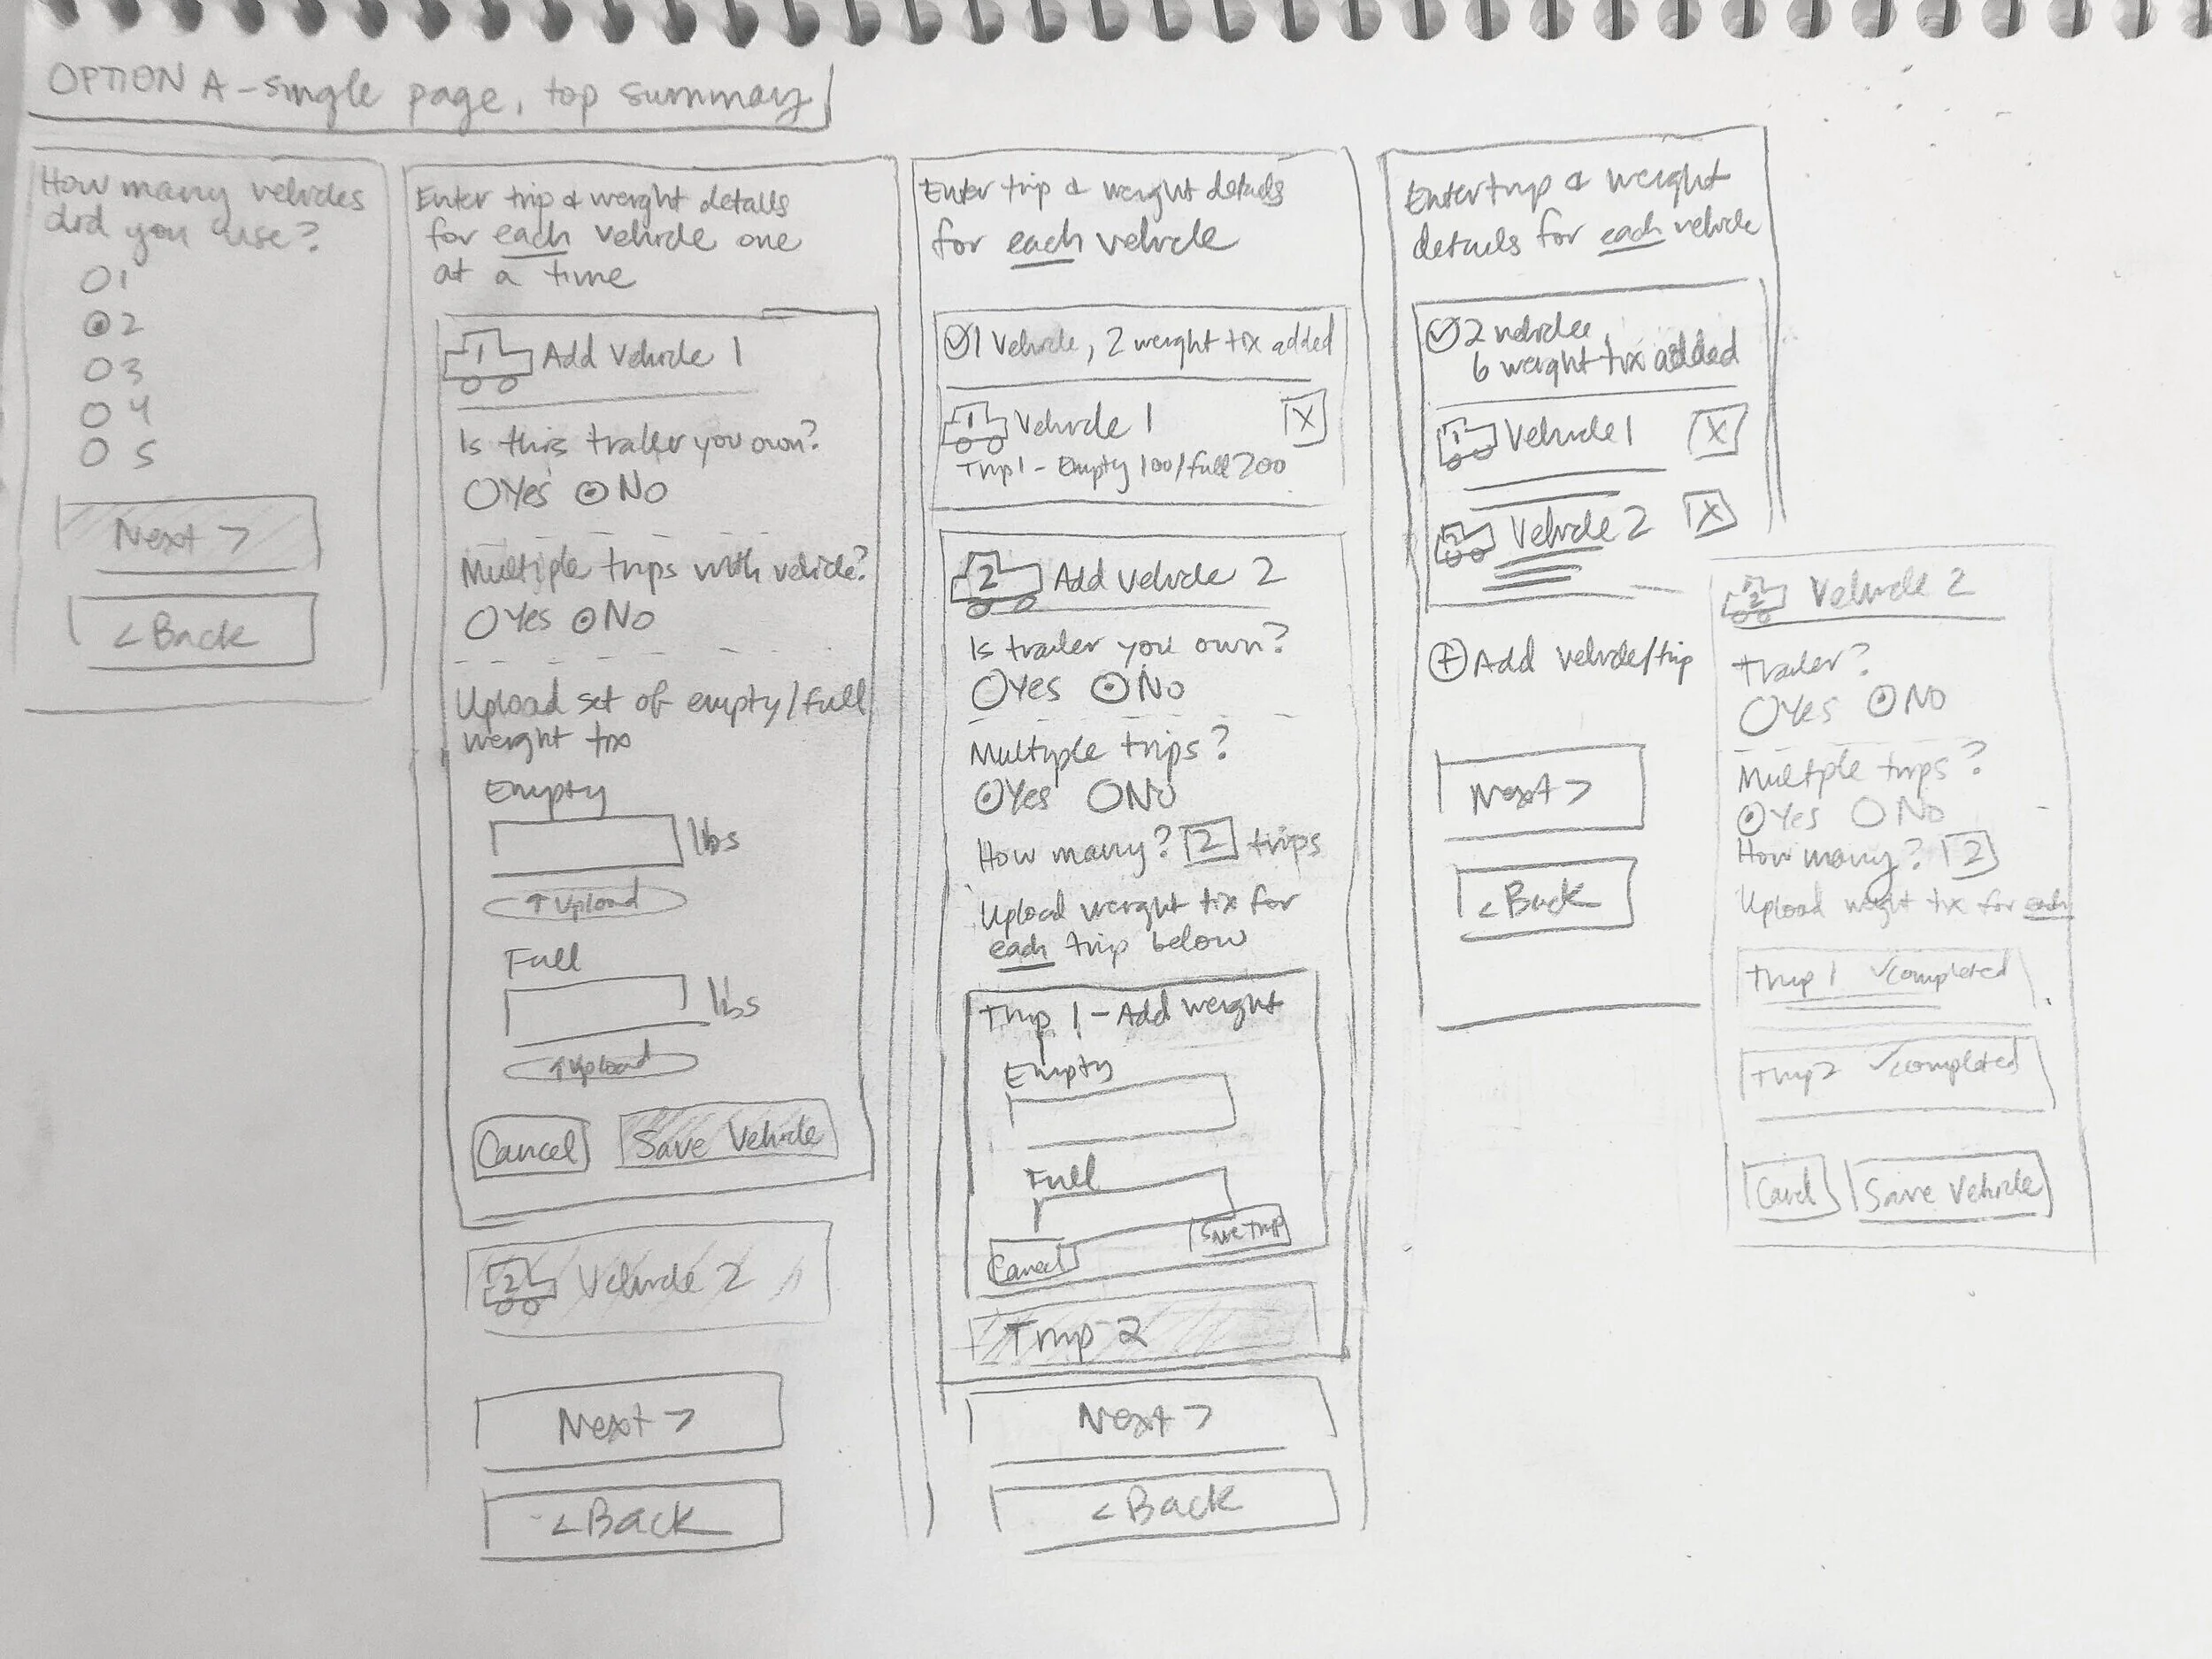 OPTION A - single page, top summary
How many vehicles
did you use?
1
2
3
4
5
Next >
< Back
Enter trip & weight details
for each vehicle one
at a time
1 Add Vehicle 1
Is this trailer you own?
Yes No
Multiple trips with vehicle?
Yes No
Upload set of empty/full
weight tix
Empty
lbs
↑ Upload
Full
lbs
↑ Upload
Cancel Save Vehicle
2 Vehicle 2
Next >
< Back
Enter trip & weight details
for each vehicle
1 Vehicle, 2 weight tix added
1 Vehicle 1 X
Trip 1 - Empty 100/full 200
2 Add vehicle 2
Is trailer you own?
Yes No
Multiple trips?
Yes No
How many? 2 trips
Upload weight tix for
each trip below
Trip 1 - Add weight
Empty
Full
Cancel Save trip
Trip 2
Next >
< Back
Enter trip & weight
details for each vehicle
2 vehicles,
6 weight tix added
1 Vehicle 1 X
2 Vehicle 2 X
+ Add vehicle/trip
Next >
< Back
2 Vehicle 2
Trailer?
Yes No
Multiple trips?
Yes No
How many? 2
Upload weight tix for each
Trip 1 ✓completed
Trip 2 ✓completed
Cancel Save Vehicle